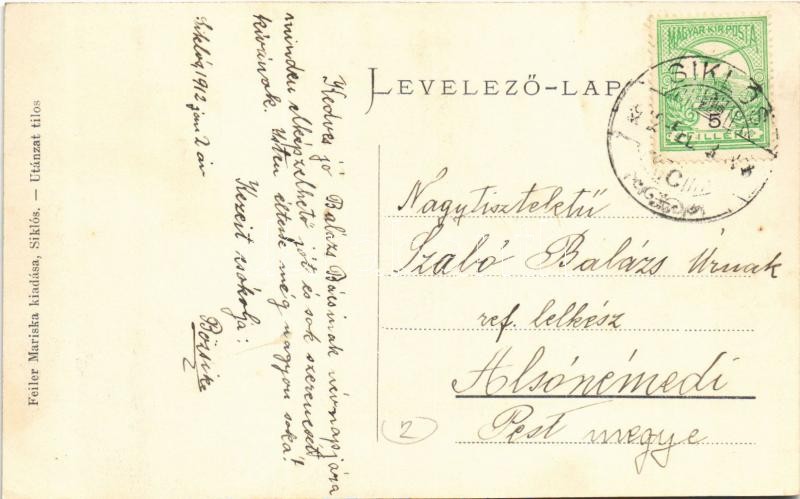 Feiler Mariska kiadása, Siklós. — Utánzat tilos
LEVELEZŐ-LAP
MAGYAR KIR. POSTA
5
FILLÉR
SIKLÓS
Kedves jó Balázs Bácsinak névnapjára
minden elképzelhető jót és sok szerencsét
kivánok. Isten éltesse még nagyon soká!
Kezeit csókolja:
Börsike
Siklós, 1912 jan 2 án
Nagytiszteletű
Szabó Balázs Úrnak
ref. lelkész
Alsónémedi
Pest megye
2